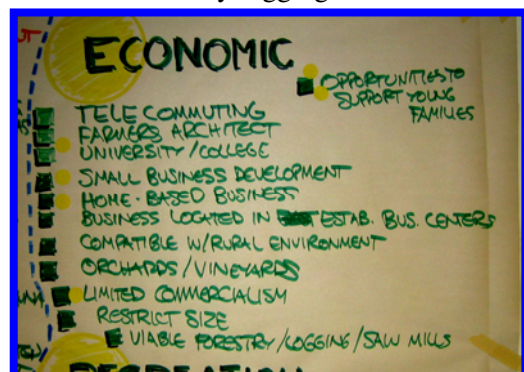 ECONOMIC
OPPORTUNITIES TO
SUPPORT YOUNG
FAMILIES
TELECOMMUTING
FARMERS ARCHITECT
UNIVERSITY/COLLEGE
SMALL BUSINESS DEVELOPMENT
HOME-BASED BUSINESS
BUSINESS LOCATED IN ESTAB. BUS. CENTERS
COMPATIBLE W/RURAL ENVIRONMENT
ORCHARDS/VINEYARDS
LIMITED COMMERCIALISM
RESTRICT SIZE
VIABLE FORESTRY/LOGGING/SAW MILLS
RECREATION